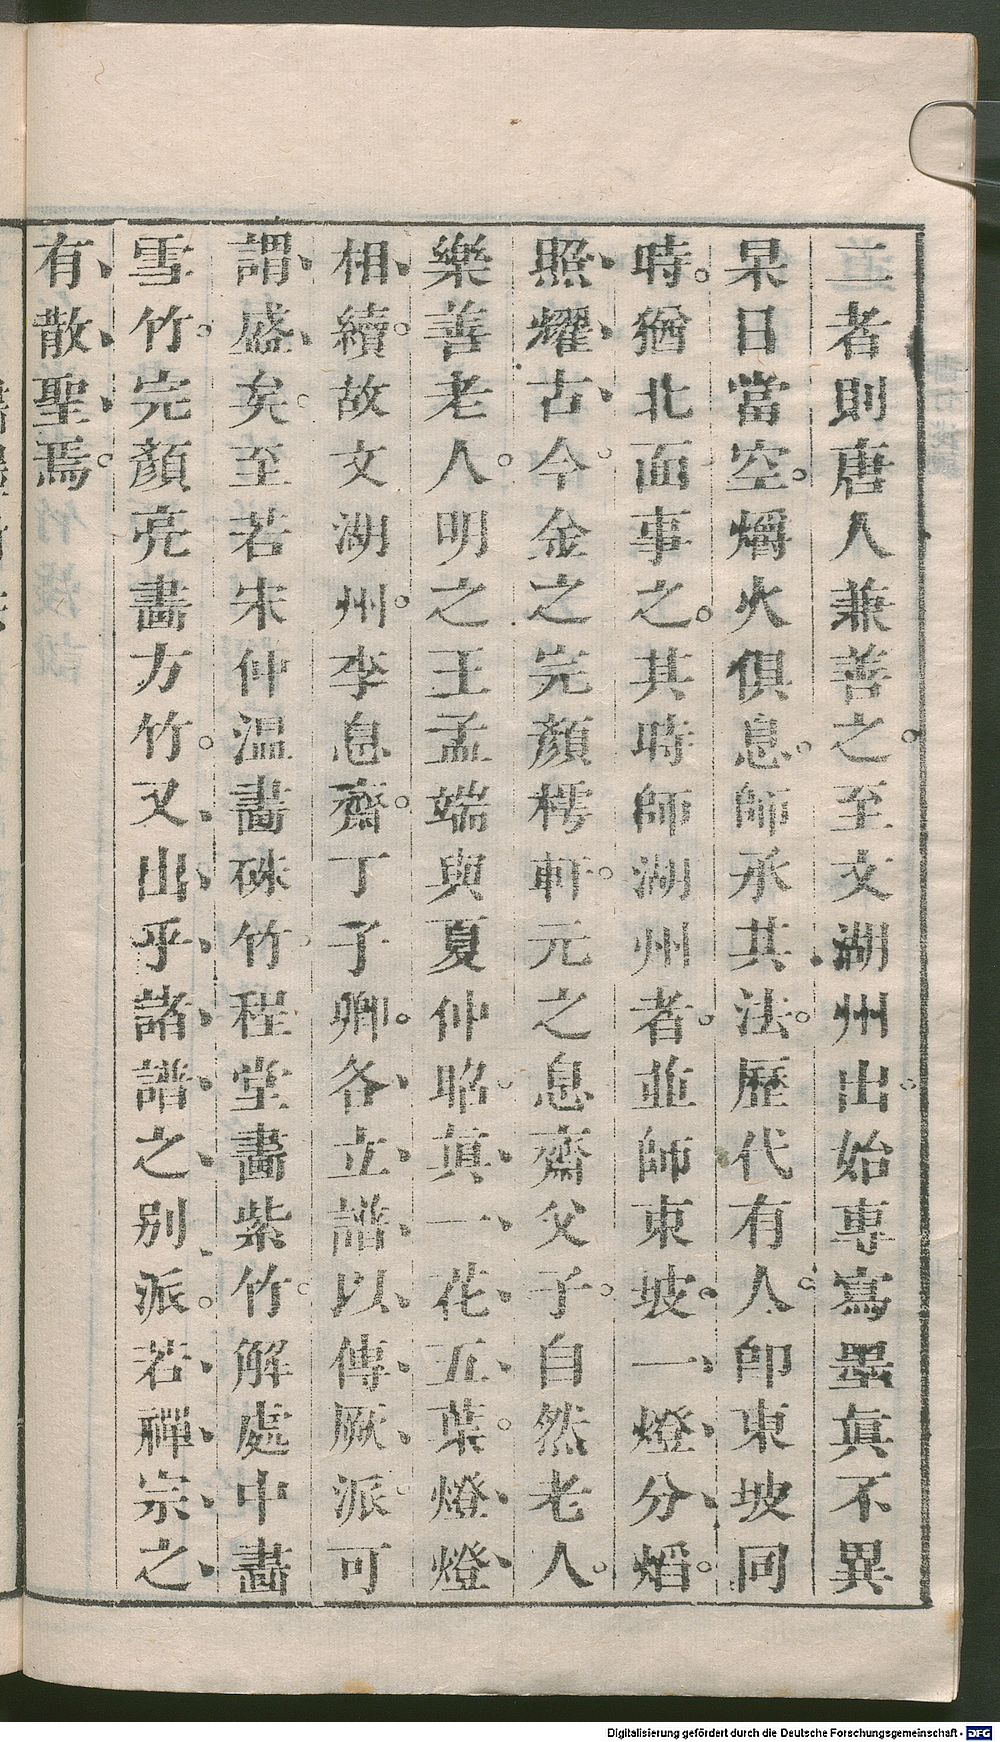 二者則唐人兼善之至文湖州出始專寫墨眞不異
杲日當空爝火俱息師承其法歷代有人卽東坡同
時猶北面事之其時師湖州者並師東坡一燈分燄
照耀古今金之完顏樗軒元之息齋父子自然老人
樂善老人明之王孟端與夏仲昭眞一花五葉燈燈
相續故文湖州李息齋丁子卿各立譜以傳厥派可
謂盛矣至若宋仲溫畵硃竹程堂畵紫竹解處中畵
雪竹完顏亮畵方竹又出乎諸譜之別派若禪宗之
有散聖焉
Digitalisierung gefördert durch die Deutsche Forschungsgemeinschaft - DFG